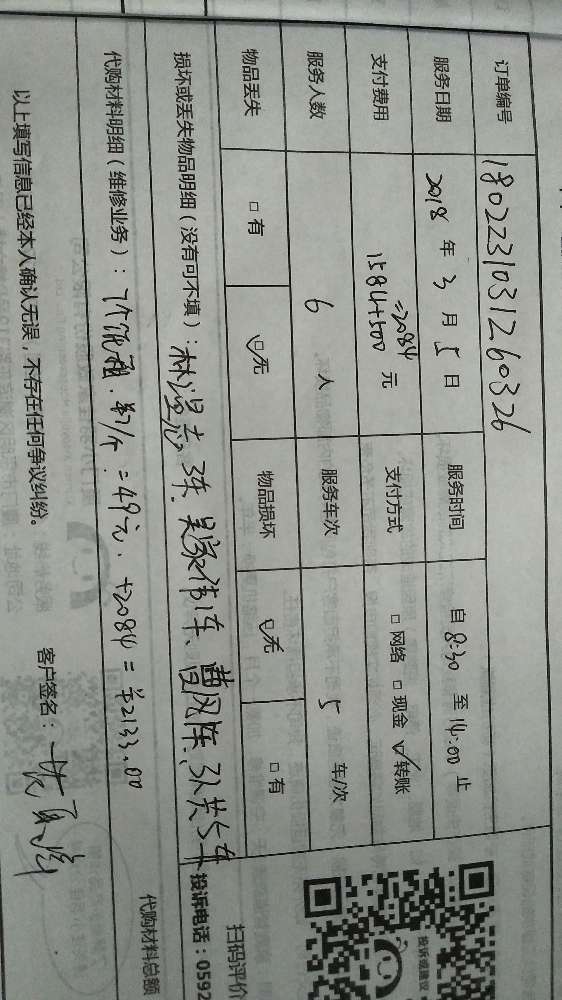 订单编号 1802231031260326
服务日期 2018 年 3 月 5 日 服务时间 自 8:30 至 14:00 止
支付费用 1584+500 =2084 元 支付方式 □ 网络 □ 现金 ☑ 转账
服务人数 6 人 服务车次 5 车/次
物品丢失 □ 有 ☑ 无 物品损坏 ☑ 无 □ 有
损坏或丢失物品明细（没有可不填）： 3车. 1车、 共5车
代购材料明细（维修业务）： 7个 7/个 =49元. +2084=¥2133.00
代购材料总额
以上填写信息已经本人确认无误，不存在任何争议纠纷。 客户签名：
投诉或建议
扫码评价
投诉电话：0592